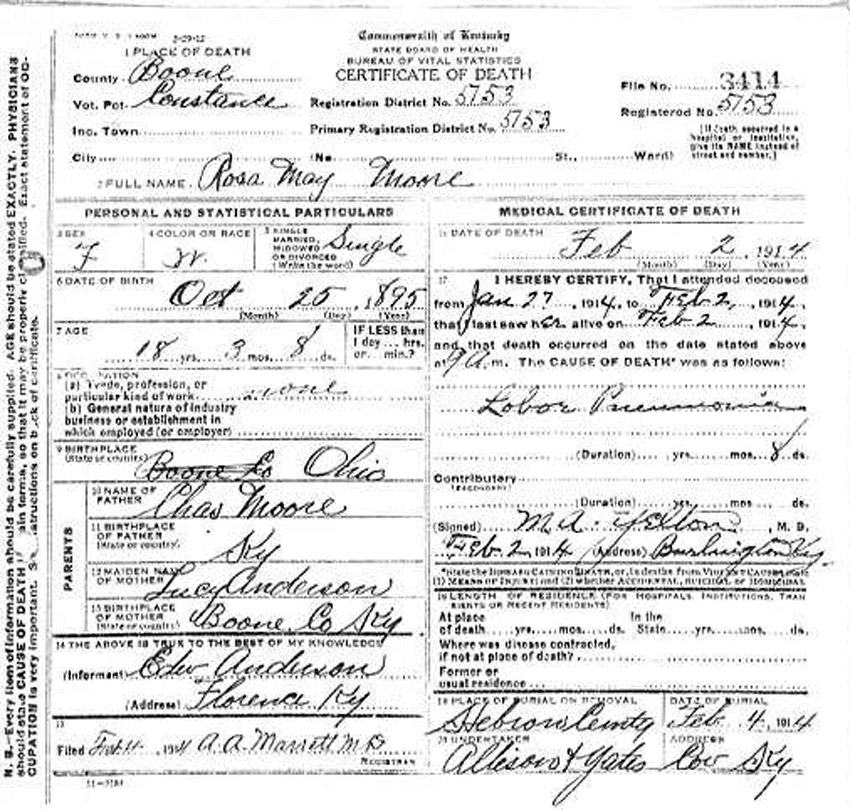 Commonwealth of Kentucky
STATE BOARD OF HEALTH
BUREAU OF VITAL STATISTICS
CERTIFICATE OF DEATH
1 PLACE OF DEATH
County Boone
Vot. Pct. Constance
Inc. Town
City No. St., Ward)
Registration District No. 5753
Primary Registration District No. 5753
File No. 3414
Registered No. 5753
(If death occurred in a
hospital or institution,
give its NAME instead of
street and number.)
2 FULL NAME Rosa May Moore
PERSONAL AND STATISTICAL PARTICULARS
3 SEX F
4 COLOR OR RACE W.
5 SINGLE
MARRIED,
WIDOWED
OR DIVORCED
(Write the word) Single
6 DATE OF BIRTH
Oct 25, 1895
(Month) (Day) (Year)
7 AGE
18 yrs. 3 mos. 8 ds.
IF LESS than
1 day ... hrs.
or ... min.?
8 OCCUPATION
(a) Trade, profession, or
particular kind of work none
(b) General nature of industry
business or establishment in
which employed (or employer)
9 BIRTHPLACE
(State or country) Boone Co Ohio
PARENTS
10 NAME OF
FATHER Chas Moore
11 BIRTHPLACE
OF FATHER
(State or country) Ky
12 MAIDEN NAME
OF MOTHER Lucy Anderson
13 BIRTHPLACE
OF MOTHER
(State or country) Boone Co Ky.
14 THE ABOVE IS TRUE TO THE BEST OF MY KNOWLEDGE
(Informant) Edw Anderson
(Address) Florence Ky
15
Filed Feb 4, 1914 A. A. Marrett M D
REGISTRAR
MEDICAL CERTIFICATE OF DEATH
16 DATE OF DEATH
Feb 2, 1914
(Month) (Day) (Year)
17 I HEREBY CERTIFY, That I attended deceased
from Jan 27, 1914, to Feb 2, 1914,
that I last saw her alive on Feb 2, 1914,
and that death occurred on the date stated above
at 9 A. m. The CAUSE OF DEATH* was as follows:
Lobar Pneumonia
(Duration) yrs. mos. 8 ds.
Contributory
(SECONDARY)
(Duration) yrs. mos. ds.
(Signed) M. A. Yelton, M. D.
Feb. 2, 1914 (Address) Burlington Ky
*State the DISEASE CAUSING DEATH, or, in deaths from VIOLENT CAUSES, state
(1) MEANS OF INJURY; and (2) whether ACCIDENTAL, SUICIDAL, or HOMICIDAL
18 LENGTH OF RESIDENCE (FOR HOSPITALS, INSTITUTIONS, TRAN
SIENTS OR RECENT RESIDENTS)
At place In the
of death yrs. mos. ds. State yrs. mos. ds.
Where was disease contracted,
if not at place of death?
Former or
usual residence
19 PLACE OF BURIAL OR REMOVAL
Hebron Cemty
DATE OF BURIAL
Feb. 4, 1914
20 UNDERTAKER
Allison & Yates
ADDRESS
Cov Ky
N. B.—Every item of information should be carefully supplied. AGE should be stated EXACTLY. PHYSICIANS
should state CAUSE OF DEATH in plain terms, so that it may be properly classified. Exact statement of OC-
CUPATION is very important. See instructions on back of certificate.